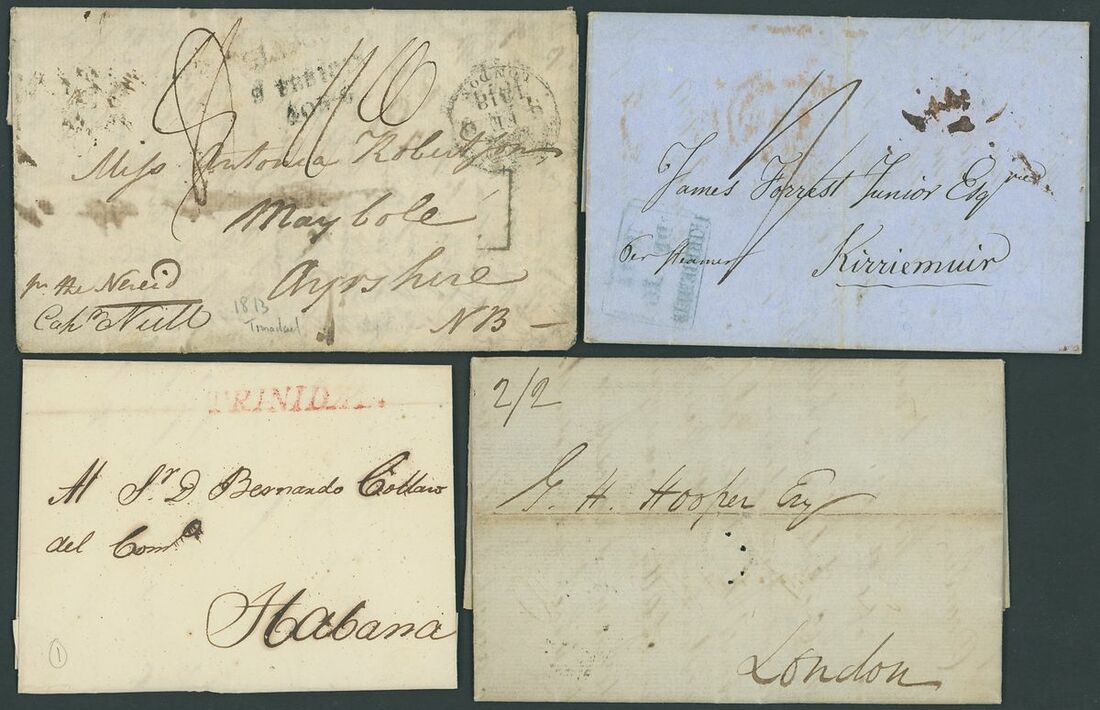 9 FEB 18
405
LONDON
1818
Miss Antonia Robertson
Maybole
Ayrshire
NB
pr. the Nereid
Capn Neill
1813
Trinidad
1/
James Forrest Junior Esqr
Per steamer
Kirriemuir
TRINIDA
Al Sr. D Bernando
del Como
Habana
1
2/2
G. H. Hooper Esq
London